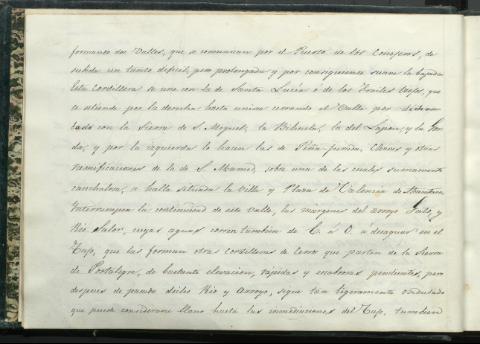 formando dos Valles, que se comunican por el Puerto de los Conejeros, de
subida un tanto dificil, pero prolongada y por consiguiente suave la bajada
Esta cordillera se une con la de Santa Lucia ó de los Frailes Viejos, que
se estiende por la derecha hasta unirse cerrando el Valle por
con la Sierra de S. Miguel, la Bihuela, la del Lapon, y la
y por la izquierda lo hacen las de Peña-jurada, Claves y otras
ramificaciones de la de S. Mamed, sobre una de las cuales sumamente
se halla situada la Villa y Plaza de Valencia de Alcantara
Interrumpen la continuidad de este Valle, las margenes del arroyo
Rio Salor, cuyas aguas corren tambien de E. á O. á desaguar en el
Tajo, que las forman otras cordilleras de Cerros que parten de la Sierra
de Portalegre, de bastante elevacion, rapidas y escabrosas pendientes, pero
despues de pasado dicho Rio y Arroyo, sigue tan ligeramente ondulado
que puede considerarse llano hasta las inmediaciones del Tajo, tambien